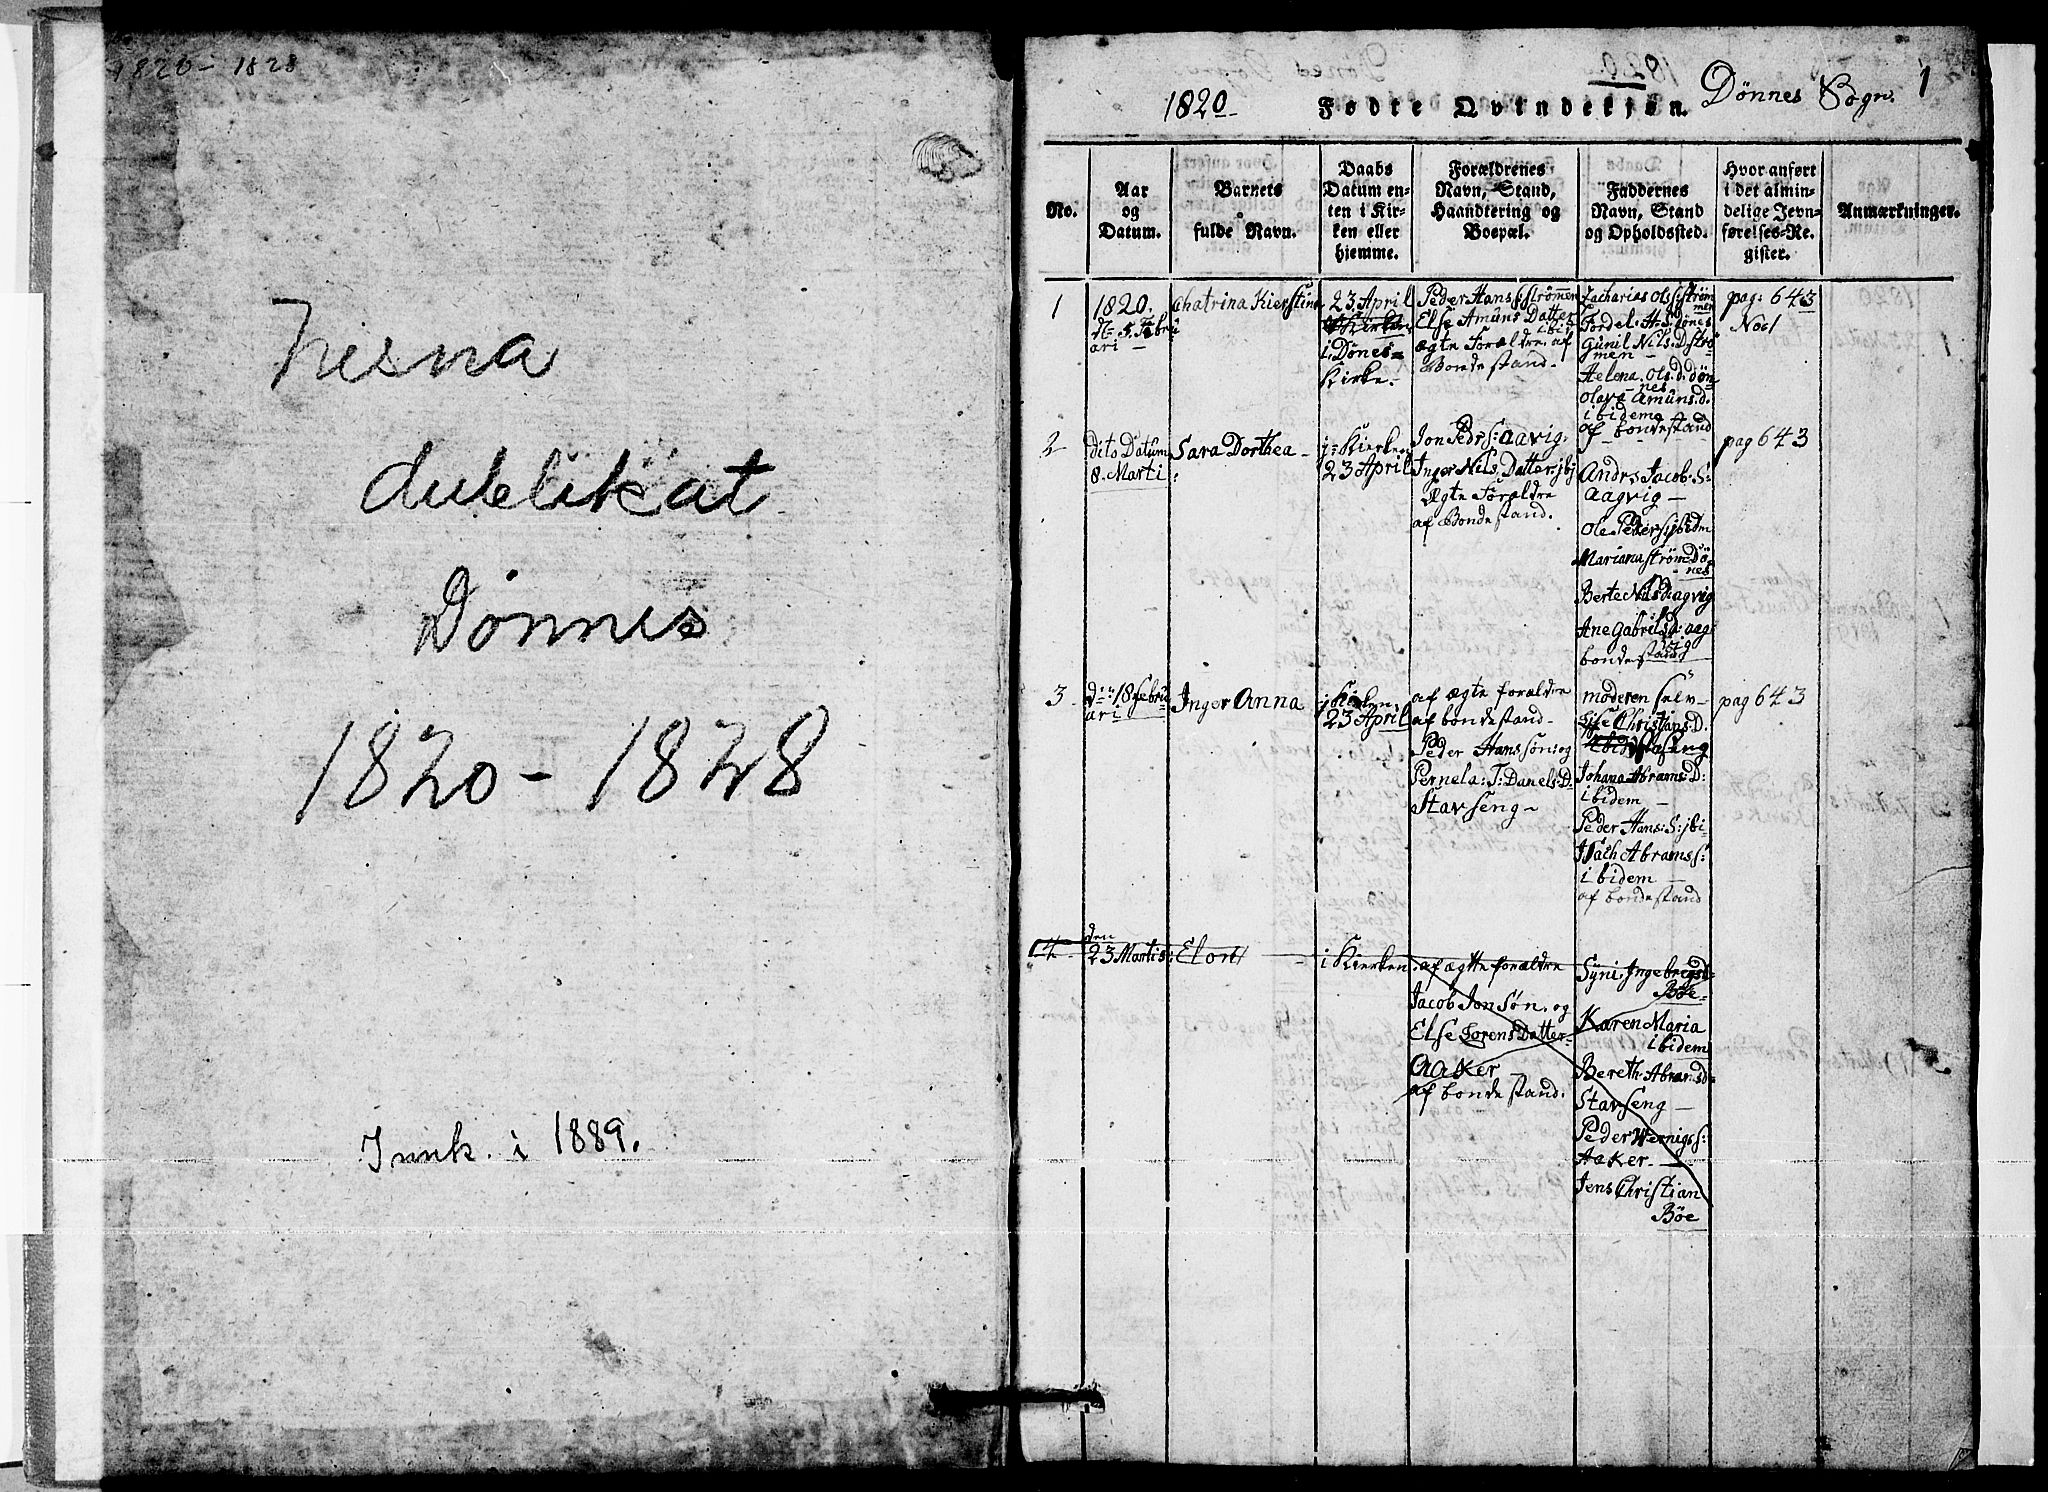 1820 - 1828
Nesna
dublikat
Dönnes
1820 - 1828
Innk. i 1889.
1820 Födte Qvindekjøn. Dönnes Sogn. 1
No.
Aar
og
Datum.
Barnets
fulde Navn.
Daabs
Datum en-
ten i Kir-
ken eller
hjemme.
Forældrenes
Navn, Stand,
Haandtering og
Boepæl.
Faddernes
Navn, Stand
og Opholdssted.
Hvor anført
i det almin-
delige Jevn-
førelses-Re-
gister.
Anmærkninger.
1
1820.
d. 5. Febru
ari
Chatrina Kierstina
23 April
i Dönes=
Kirke.
Peder Hans S: strømmen
Else Amüns Datter
ibid
ægte Forældre. af
Bonde stand.
Zacharias Ols S: strøm
men
Tordel: H. S. dönes
Günil Nils. D. strö
men
Helena. Ols. d. dön
nes
Olava Amüns. d.
ibidem
af bondestand
pag: 643
No 1
2
dito Datum
8. Marti
Sara Dorthea
i Kierken
23 April
Jon Peds S: aavig.
Inger Nils Datter ibj
Ægte Forældre
af Bonde stand.
Andrs Jacob. S:
aagvig
Ole Peder S ibidm
Mariana ström Dö
nes
Berte Nils d: agvig
Ane Gabrils d: aag
vig
bondestand
pag 643
3
d: 18 febru
ari
Inger Anna
i Kirken
23 April
af ægte forældre
af bondestand
Peder Hanssön: og
Pernela: T: Danels: D.
Stavseng
moderen selv
Else Christians. D.
Johana Abrams: D:
ibidem
Peder Hans: S: jbi
Isach Abrams S:
ibidem
af bondestand
pag 643
4
den
23 Martis
Elon
i Kierken
af ægtte forældre
Jacob Jon Søn. og
Else Sorens Datter
Aaker
af bonde stand.
Syni. Ingebregsd
Böe
Karen Maria
ibidem
Bereth. Abramsd
Stavseng
Peder Hernigs S:
Aaker
Jens Christian
Böe